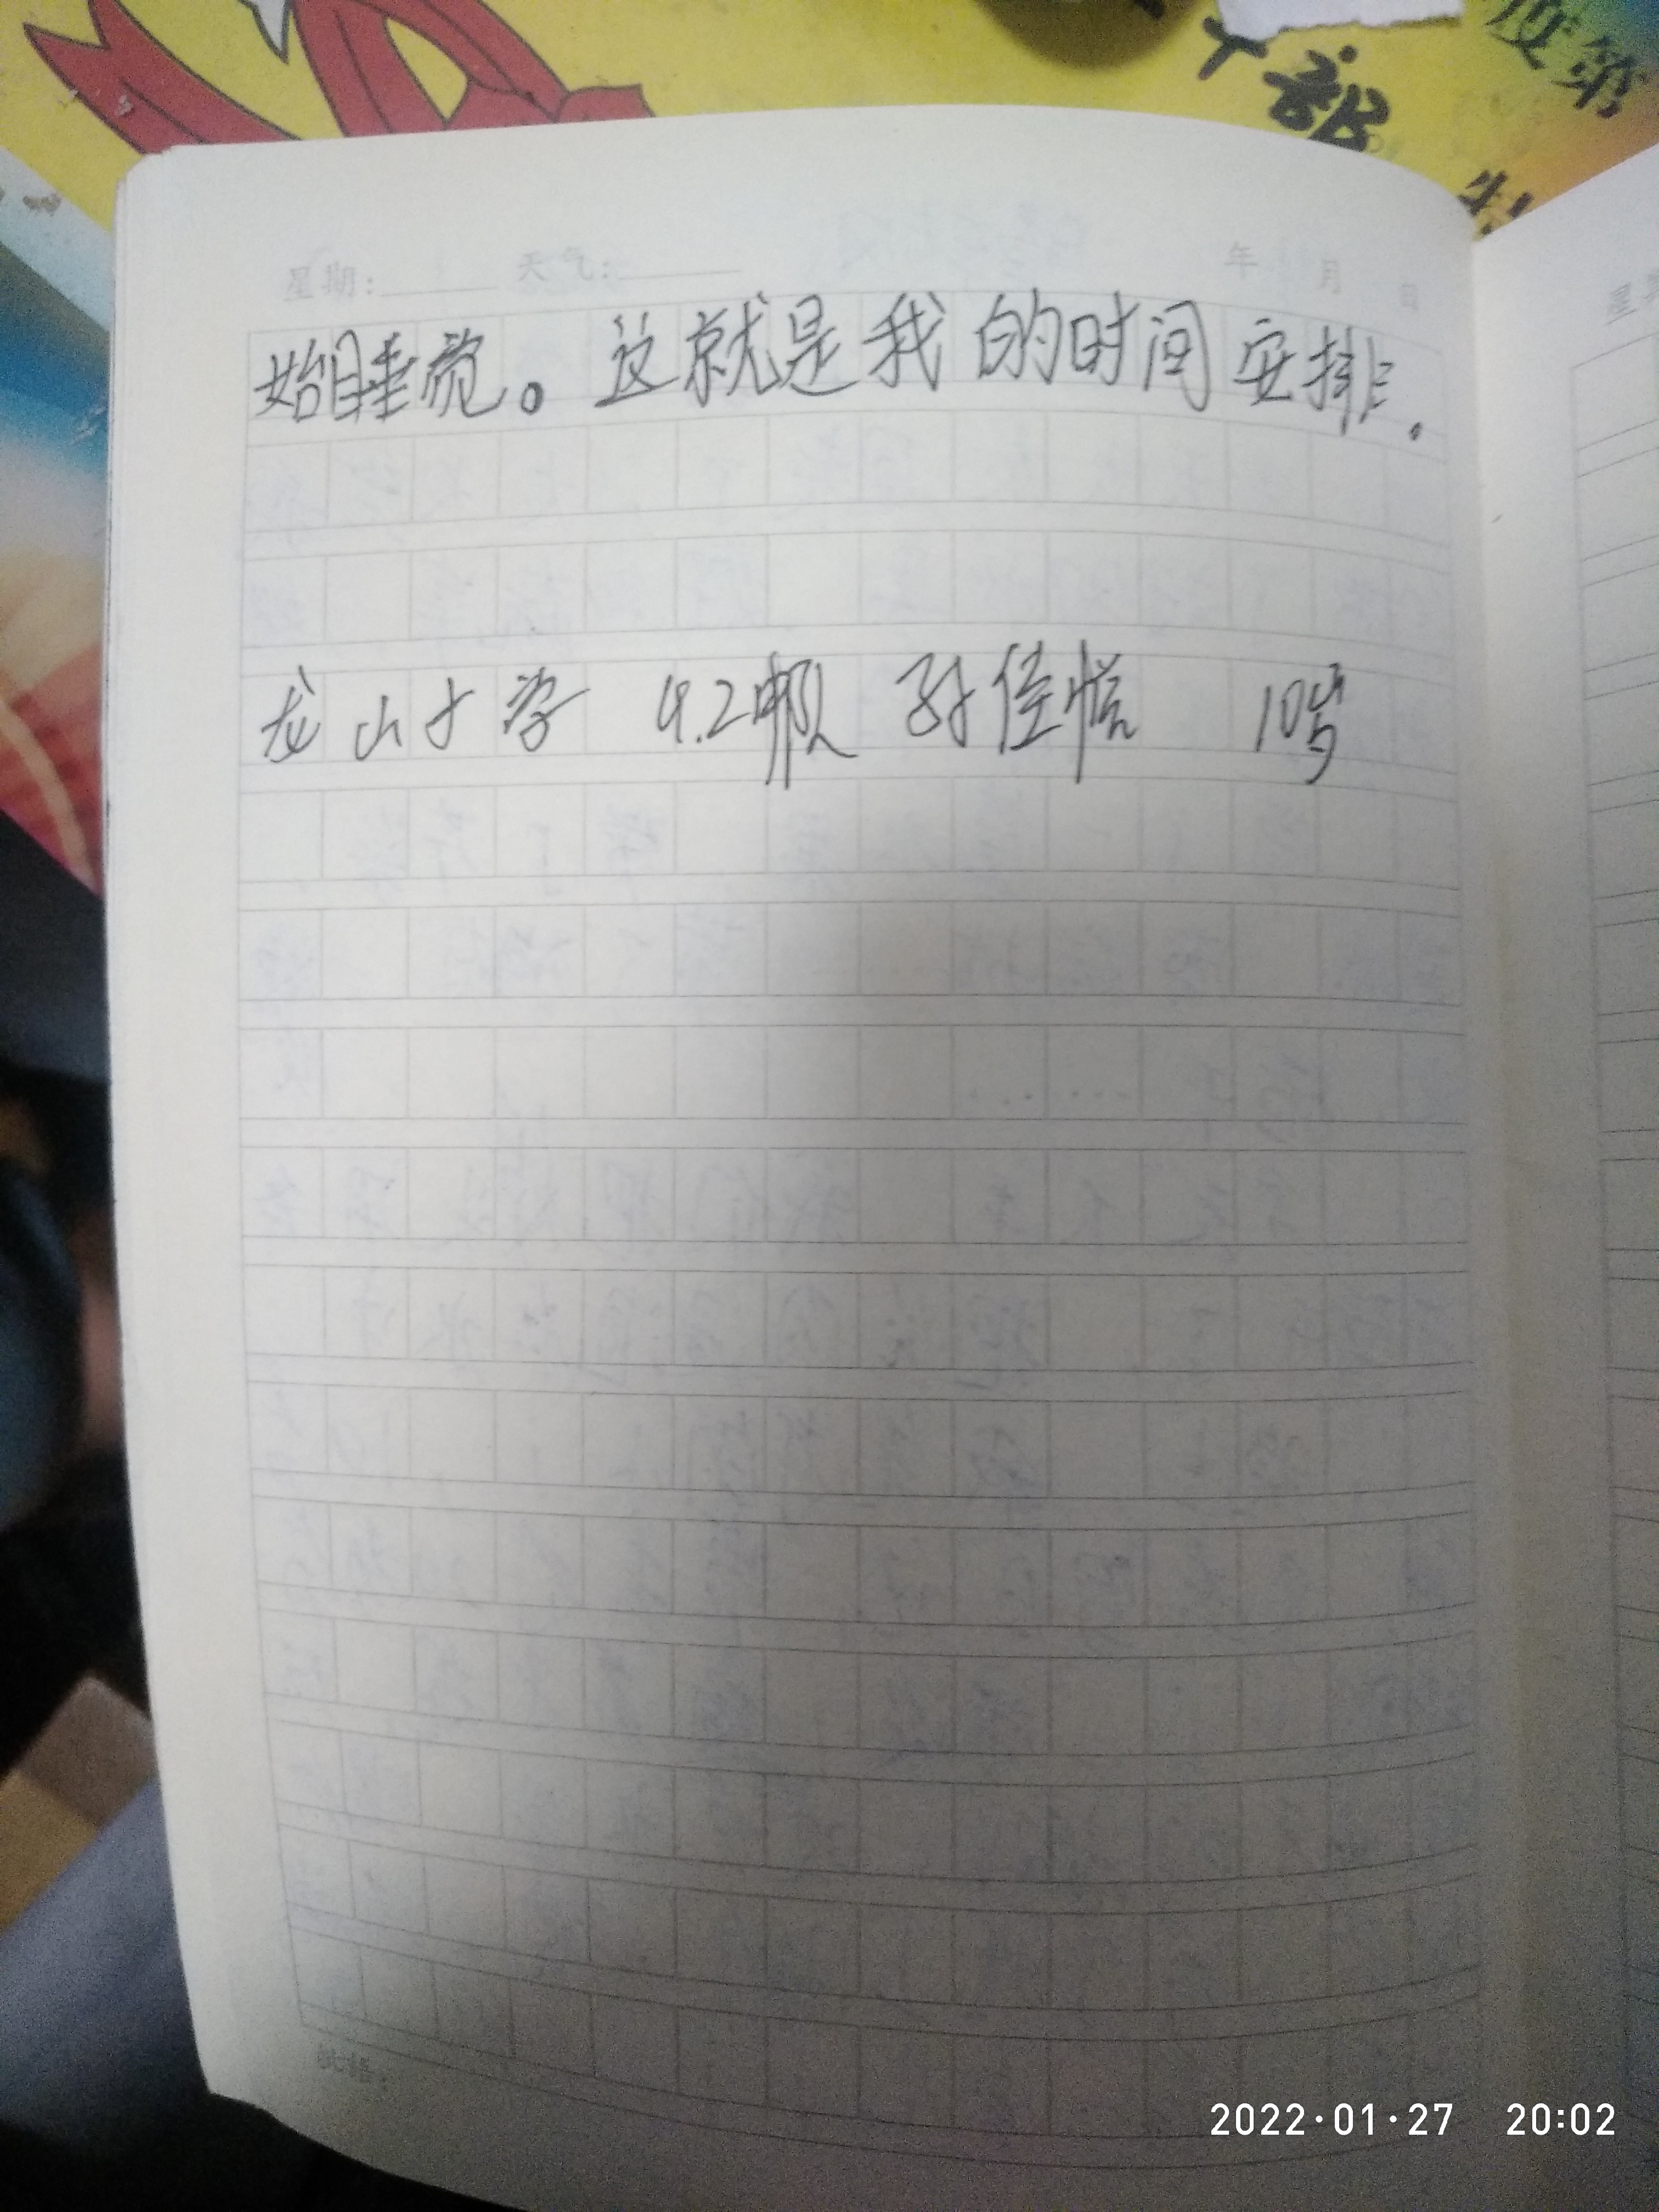 度第
部
星期: 天气: 年 月 日
始睡觉。这就是我的时间安排.
龙山小学 4.2中队 孙佳 10岁
批语:
2022·01·27 20:02